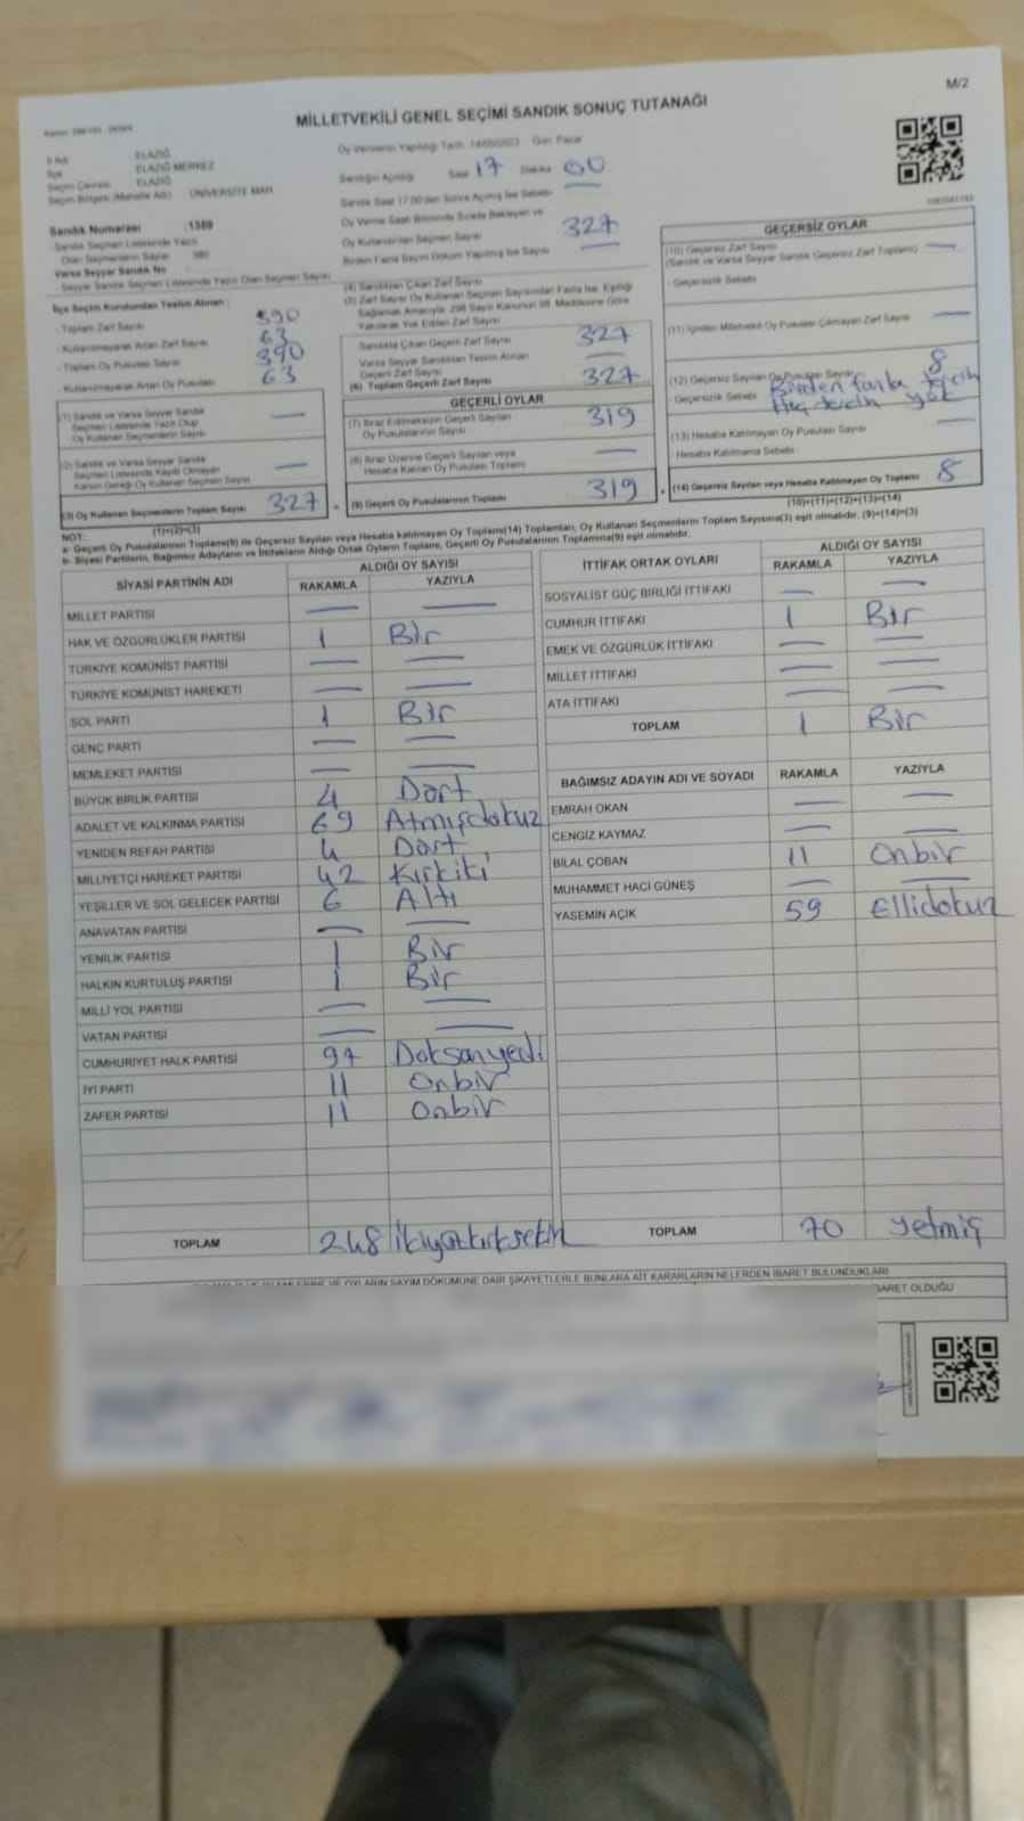 M/2
MİLLETVEKİLİ GENEL SEÇİMİ SANDIK SONUÇ TUTANAĞI
İl Adı ELAZIĞ
İlçe ELAZIĞ MERKEZ
Seçim Çevresi ELAZIĞ
Seçim Bölgesi (Mahalle Adı) ÜNİVERSİTE MAH
Sandık Numarası 1389
Sandık Seçmen Listesinde Yazılı
Olan Seçmenlerin Sayısı
Varsa Seyyar Sandık No
Seyyar Sandık Seçmen Listesinde Yazılı Olan Seçmen Sayısı
Oy Vermenin Yapıldığı Tarih 14/05/2023 Gün Pazar
Sandığın Açıldığı Saat 17 Dakika 00
Sandık Saat 17.00'den Sonra Açılmış İse Sebebi —
Oy Verme Saati Bitiminde Sırada Bekleyen ve
Oy Kullandırılan Seçmen Sayısı 327
Birden Fazla Sayım Döküm Yapılmış İse Sayısı —
İlçe Seçim Kurulundan Teslim Alınan
Toplam Zarf Sayısı 390
Kullanılmayarak Artan Zarf Sayısı 63
Toplam Oy Pusulası Sayısı 390
Kullanılmayarak Artan Oy Pusulası 63
(1) Sandık ve Varsa Seyyar Sandık
Seçmen Listesinde Yazılı Olup
Oy Kullanan Seçmenlerin Sayısı —
(2) Sandık ve Varsa Seyyar Sandık
Seçmen Listesinde Kayıtlı Olmayan
Kanun Gereği Oy Kullanan Seçmen Sayısı —
(3) Oy Kullanan Seçmenlerin Toplam Sayısı 327
(1)+(2)=(3)
(4) Sandıktan Çıkan Zarf Sayısı
(5) Zarf Sayısı Oy Kullanan Seçmen Sayısından Fazla İse, Eşitliği
Sağlamak Amacıyla, 298 Sayılı Kanunun 98. Maddesine Göre
Yakılarak Yok Edilen Zarf Sayısı
Sandıkta Çıkan Geçerli Zarf Sayısı 327
Varsa Seyyar Sandıktan Teslim Alınan
Geçerli Zarf Sayısı —
(6) Toplam Geçerli Zarf Sayısı 327
GEÇERLİ OYLAR
(7) İtiraz Edilmeksizin Geçerli Sayılan
Oy Pusulalarının Sayısı 319
(8) İtiraz Üzerine Geçerli Sayılan veya
Hesaba Katılan Oy Pusulaları Toplamı —
(9) Geçerli Oy Pusulalarının Toplamı 319
GEÇERSİZ OYLAR
(10) Geçersiz Zarf Sayısı
(Sandık ve Varsa Seyyar Sandık Geçersiz Zarf Toplamı) —
Geçersizlik Sebebi
(11) İçinden Milletvekili Oy Pusulası Çıkmayan Zarf Sayısı —
(12) Geçersiz Sayılan Oy Pusulası Sayısı 8
Geçersizlik Sebebi Birden fazla tercih
Hiç tercih yok
(13) Hesaba Katılmayan Oy Pusulası Sayısı —
Hesaba Katılmama Sebebi
(14) Geçersiz Sayılan veya Hesaba Katılmayan Oy Toplamı 8
(10)+(11)+(12)+(13)=(14)
NOT:
a- Geçerli Oy Pusulalarının Toplamı(9) ile Geçersiz Sayılan veya Hesaba katılmayan Oy Toplamı(14) Toplamları, Oy Kullanan Seçmenlerin Toplam Sayısına(3) eşit olmalıdır. (9)+(14)=(3)
b- Siyasi Partilerin, Bağımsız Adayların ve İttifakların Aldığı Ortak Oyların Toplamı, Geçerli Oy Pusulalarının Toplamına(9) eşit olmalıdır.
SİYASİ PARTİNİN ADI ALDIĞI OY SAYISI
RAKAMLA YAZIYLA
MİLLET PARTİSİ — —
HAK VE ÖZGÜRLÜKLER PARTİSİ 1 Bir
TÜRKİYE KOMÜNİST PARTİSİ — —
TÜRKİYE KOMÜNİST HAREKETİ — —
SOL PARTİ 1 Bir
GENÇ PARTİ — —
MEMLEKET PARTİSİ — —
BÜYÜK BİRLİK PARTİSİ 4 Dört
ADALET VE KALKINMA PARTİSİ 69 Atmışdokuz
YENİDEN REFAH PARTİSİ 4 Dört
MİLLİYETÇİ HAREKET PARTİSİ 42 Kırkiki
YEŞİLLER VE SOL GELECEK PARTİSİ 6 Altı
ANAVATAN PARTİSİ — —
YENİLİK PARTİSİ 1 Bir
HALKIN KURTULUŞ PARTİSİ 1 Bir
MİLLİ YOL PARTİSİ — —
VATAN PARTİSİ — —
CUMHURİYET HALK PARTİSİ 97 Doksanyedi
İYİ PARTİ 11 Onbir
ZAFER PARTİSİ 11 Onbir
TOPLAM 248 ikiyüzkırksekiz
İTTİFAK ORTAK OYLARI ALDIĞI OY SAYISI
RAKAMLA YAZIYLA
SOSYALİST GÜÇ BİRLİĞİ İTTİFAKI — —
CUMHUR İTTİFAKI 1 Bir
EMEK VE ÖZGÜRLÜK İTTİFAKI — —
MİLLET İTTİFAKI — —
ATA İTTİFAKI — —
TOPLAM 1 Bir
BAĞIMSIZ ADAYIN ADI VE SOYADI RAKAMLA YAZIYLA
EMRAH OKAN — —
CENGİZ KAYMAZ — —
BİLAL ÇOBAN 11 Onbir
MUHAMMET HACİ GÜNEŞ — —
YASEMİN AÇIK 59 Ellidokuz
TOPLAM 70 yetmiş
OYLARIN SAYIM DÖKÜMÜNE DAİR ŞİKAYETLERLE BUNLARA AİT KARARLARIN NELERDEN İBARET BULUNDUKLARI
İBARET OLDUĞU